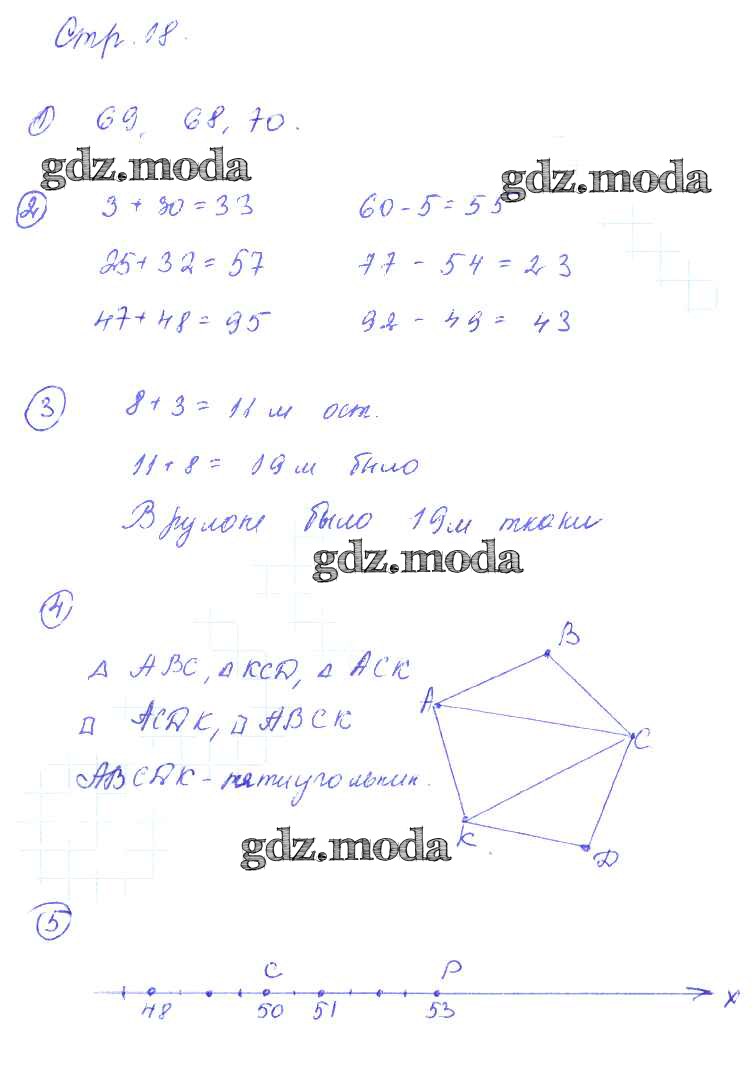 Стр. 18.
1) 69, 68, 70.
gdz.moda
gdz.moda
2) 3 + 30 = 33 60 - 5 = 55
25 + 32 = 57 77 - 54 = 23
47 + 48 = 95 92 - 49 = 43
3) 8 + 3 = 11 м ост.
11 + 8 = 19 м было
В рулоне было 19 м ткани
gdz.moda
4)
△ ABC, △ KCD, △ ACK
□ ACDK, □ ABCK
ABCDK - пятиугольник.
B
A
C
K
D
gdz.moda
5)
C P
48 50 51 53 x